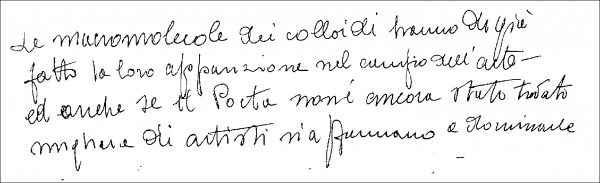 Le macromolecole dei colloidi hanno di già
fatto la loro apparizione nel campo dell'arte –
ed anche se il Poeta non è ancora stato trovato
migliaia di artisti già fremano a dominarle